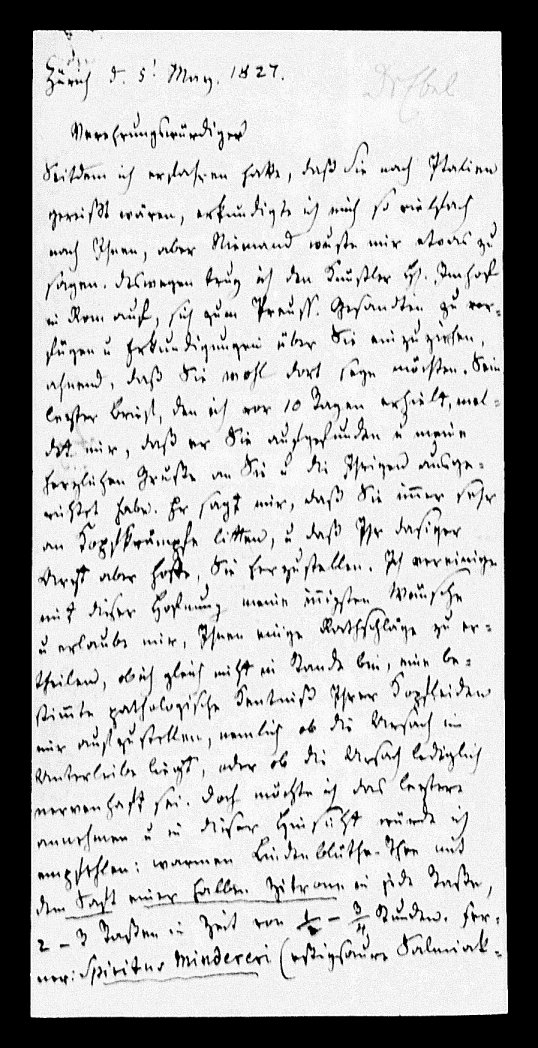 Zürich d. 5! May. 1827.
Dr Ebel
Verehrungswürdiger
Seitdem ich erfahren hatte, daß Sie nach Italien
gereißt wären, erkundigte ich mich so vielfach
nach Ihnen, aber Niemand wußte mir etwas zu
sagen. deswegen trug ich den Künstler H. Imhof
in Rom auf, sich zum Preuss. Gesandten zu ver-
fügen u Erkundigungen über Sie einzuziehen,
ahnend, daß Sie wohl dort seyn möchten. Sein
letzter Brief, den ich vor 10 Tagen erhielt, mel-
det mir, daß er Sie aufgefunden u meine
herzlichen Grüße an Sie u die Ihrigen ausge-
richtet habe. Er sagt mir, daß Sie immer sehr
an Kopfkrämpfe litten, u daß Ihr dasiger
Arzt aber hoffe, Sie herzustellen. Ich vereinige
mit dieser Hofnung meine innigsten Wünsche
u erlaube mir, Ihnen einige Rathschläge zu er-
theilen, ob ich gleich nicht im Stande bin, eine be-
stimmte pathologische Kentniß Ihrer Kopfleiden
mir aufzustellen, nemlich ob die Ursach im
Unterleibe liegt, oder ob die Ursach lediglich
nervenhaft sei. Doch möchte ich das letztere
annehmen u in dieser Hinsicht würde ich
empfehlen: warmen Lindenblüthe-Thee mit
dem Saft einer halben Zitrone in jede Taße,
2 - 3 Taßen in Zeit von ½ - ¾ Stunden. Fer-
ner: Spiritus Mindereri (essigsaure Salmiak-